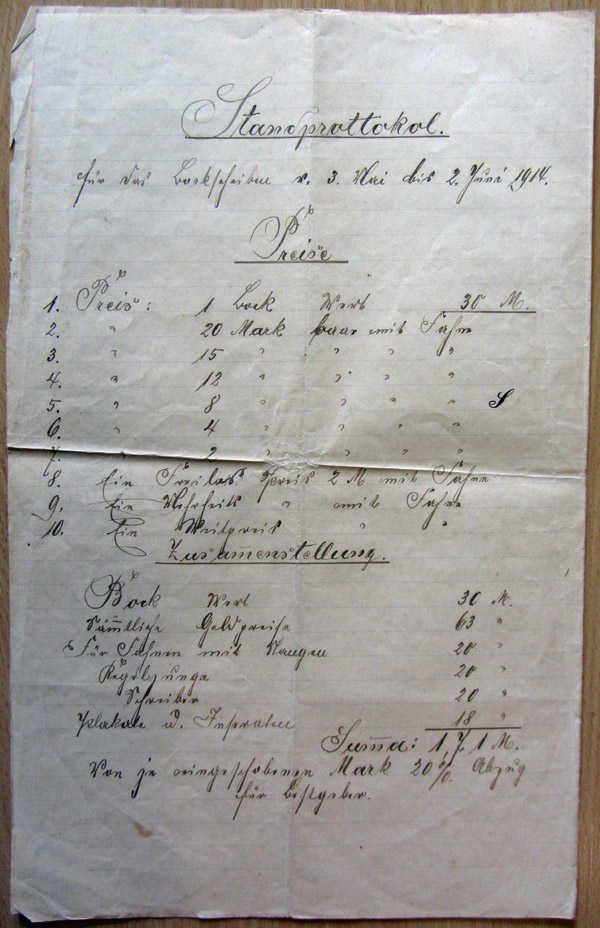 Standprottokol.
für das Bockscheiben v. 3. Mai bis 2. Juni 1914.
Preise
1. Preis: 1 Bock Wert 30 M.
2. " 20 Mark baar mit Fahne
3. " 15 " " " "
4. " 12 " " " "
5. " 8 " " " "
6. " 4 " " " "
7. " 2 " " " "
8. Ein Freilos Preis 2 M mit Fahne
9. Ein Mehrheits " mit Fahne
10. Ein Weitpreis " "
Zusam̅enstellung.
Bock Wert 30 M.
Säm̅tliche Geldpreise 63 "
Für Fahnen mit Stangen 20 "
Kegeljunge 20 "
Schreiber 20 "
Plakate u. Inseraten 18 "
Sum̅a: 171 M.
Von je eingeschobenen Mark 20%. Abzug
für Bestgeber.